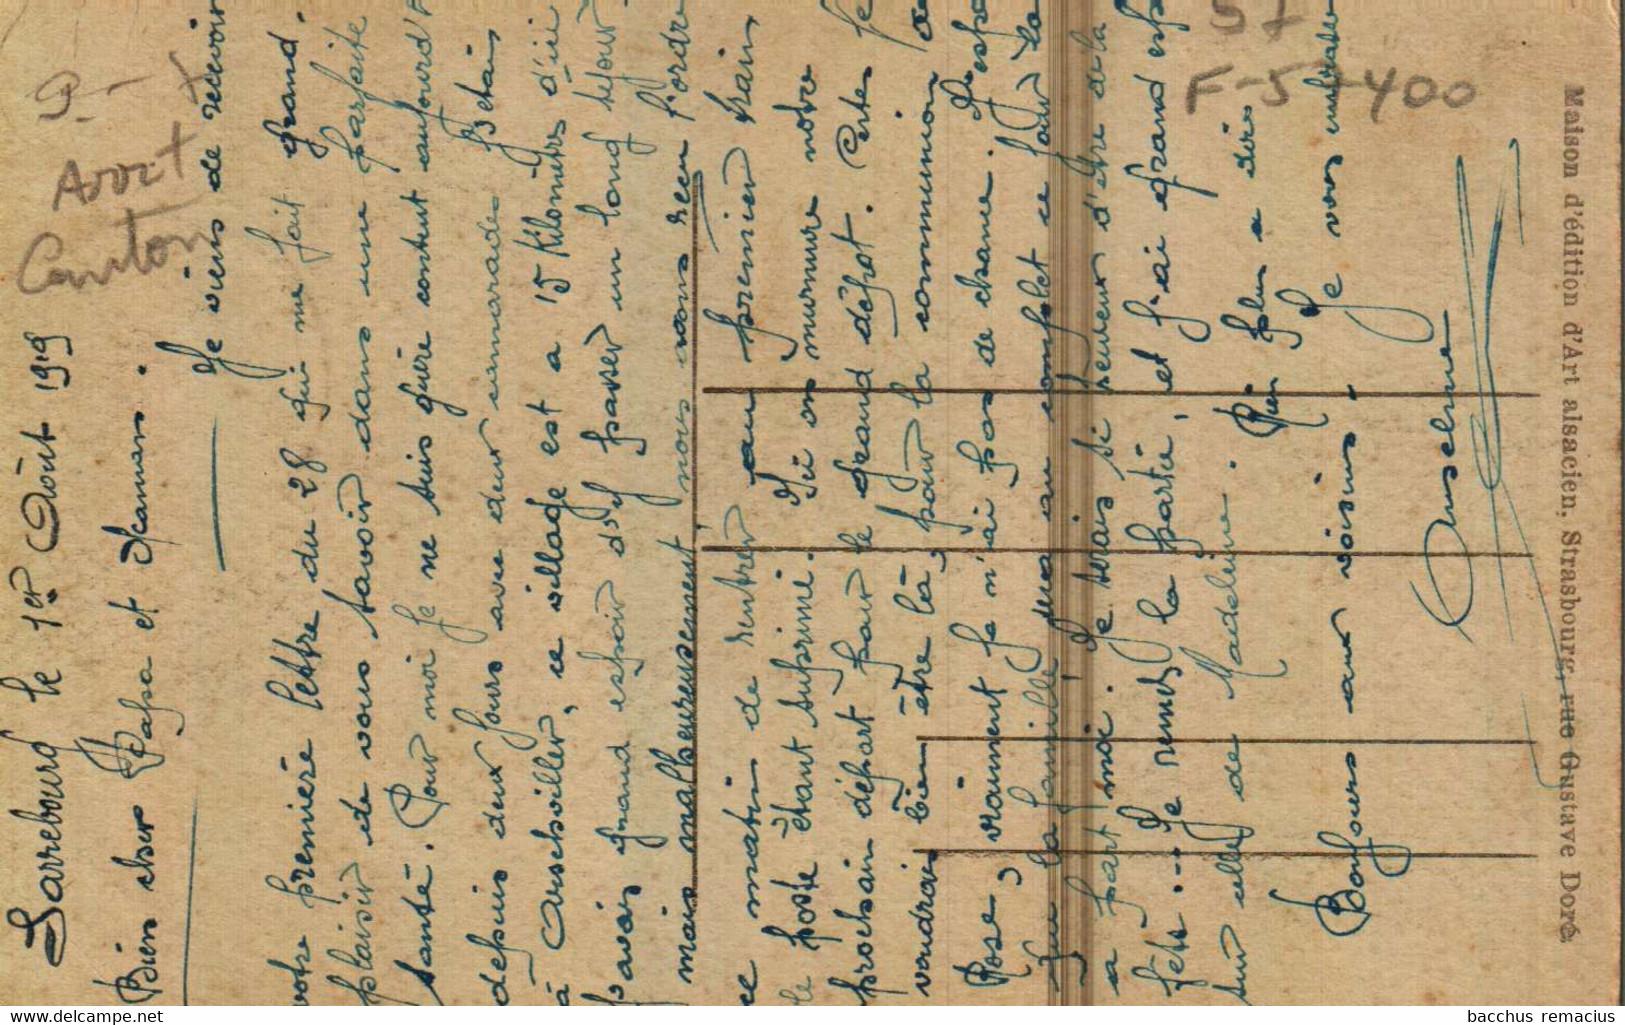 Sarrebourg le 1er Août 1919
Bien cher Papa et Jeanne.
Je viens de recevoir
votre première lettre du 28 qui me fait grand
plaisir et de vous savoir dans une parfaite
santé. Pour moi je ne suis guère content aujourd'h
depuis deux jours avec deux camarades j'étais
à ce village est a 15 kilomètres d'ici
j'avais grand espoir d'y passer un long séjour
mais malheureusement nous avons reçu l'ordre
ce matin de rentrer au premier train,
le poste étant suprimé. Ici on murmure notre
prochain départ pour le grand dépot. Certes je
voudrais bien être là, pour la communion de
Rose, vraiment je n'ai pas de chance. J'esp
que la famille sera au complet ce jour là
a part moi. Je serais si heureux d'être de la
fête... Je remets la partie, et j'ai grand esp
sur celle de Madeleine. Rien plus a dire
Bonjours aux voisins. Je vous embrasse
Anselme
P.-
Canton
57
F-57-400
Maison d'édition d'Art alsacien, Strasbourg, rue Gustave Doré
bacchus remacius
www.delcampe.net